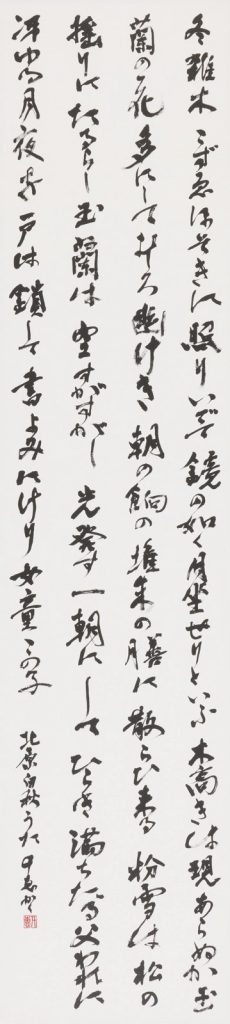 冬雑木こずゑほそきに照りいでて鏡の如く月坐せりといふ木高きは現あらぬか玉
蘭の花多にして幽けき朝の餉の堆朱の膳に散らひ来る粉雪は松の
揺りに玉蘭は空すがすがし光発す一朝にしてひらき満ちたる父われは
冴ゆる月夜を戸は鎖して書よみにけり女童この子
北原白秋うた